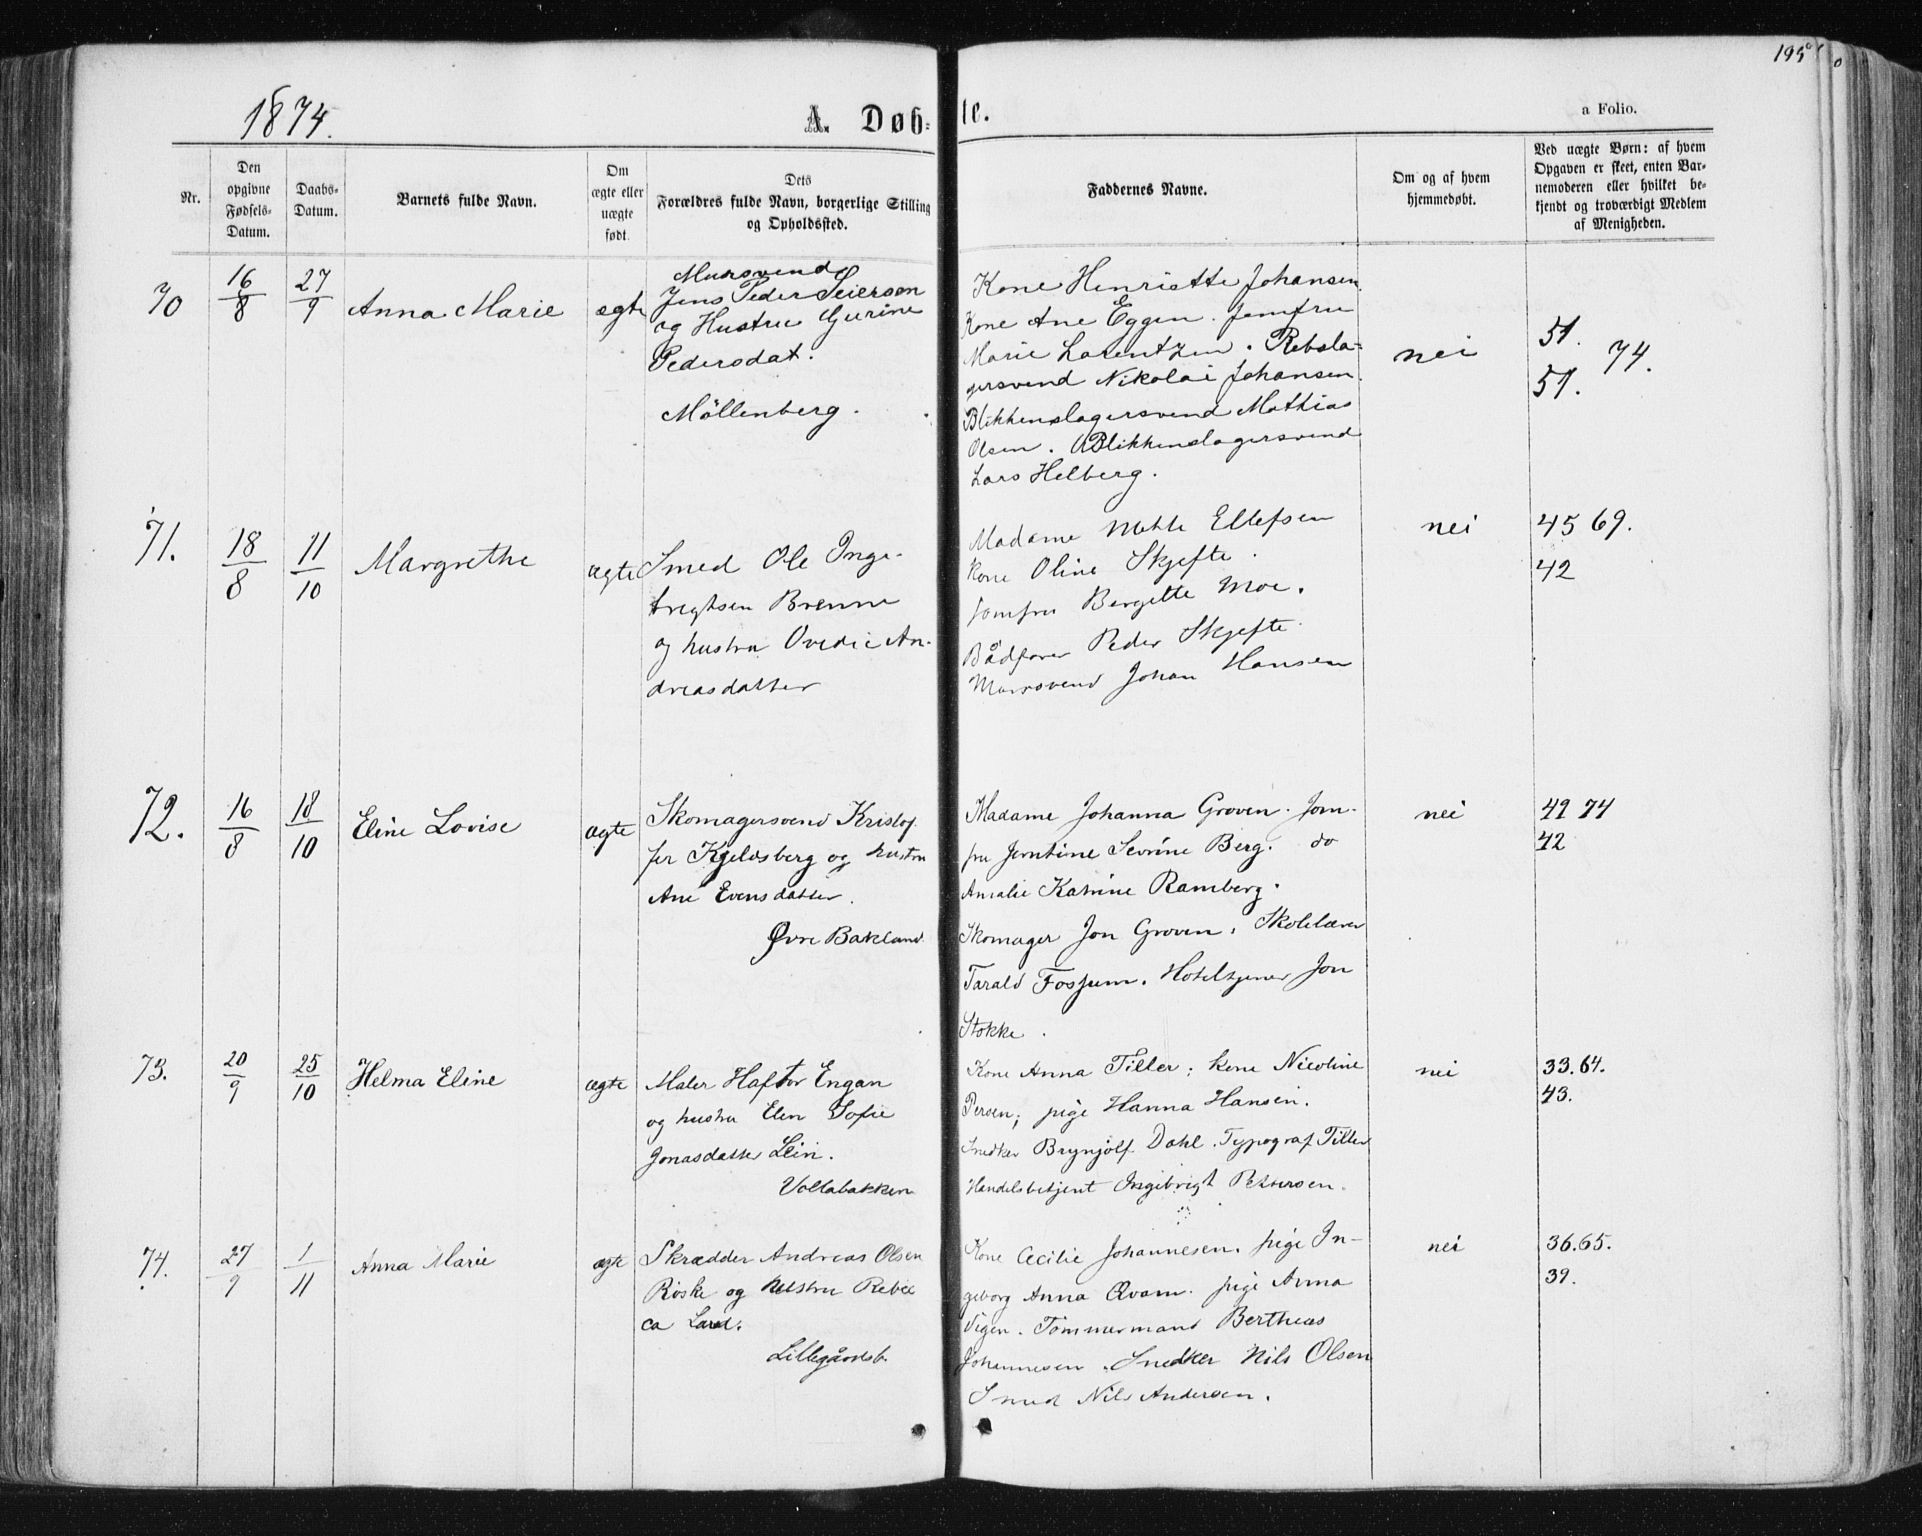 195
1874.
A. Døbte.
a Folio.
Nr.
Den opgivne Fødsels-Datum.
Daabs-Datum.
Barnets fulde Navn.
Om ægte eller uægte født.
Dets Forældres fulde Navn, borgerlige Stilling og Opholdssted.
Faddernes Navne.
Om og af hvem hjemmedøbt.
Ved uægte Børn: af hvem
Opgaven er skeet, enten Bar-
nemoderen eller hvilket be-
kjendt og troværdigt Medlem
af Menigheden.
70 16/8 27/9 Anna Marie ægte
Mursvend
Jens Peder Seiersen
og Hustru Gurine
Pedersdat.
Möllenberg.
Kone Henriette Johansen.
Kone Ane Eggen. Jomfru
Marie Lorentzen. Rebsla-
gersvend Nikolai Johansen.
Blikkenslagersvend Mathias
Olsen. Blikkenslagersvend
Lars Helberg.
nei
51. 74.
51.
71. 18/8 11/10 Margrethe ægte
Smed Ole Inge-
brigtsen Brenne
og hustru Ovedie An-
dreasdatter
Madame Mette Ellefsen
kone Oline Skjefte.
Jomfru Bergitte Moe.
Bådfører Peder Skjefte.
Mursvend Johan Hansen
nei
45 69.
42
72. 16/8 18/10 Eline Lovise ægte
Skomagersvend Kristof-
fer Kjeldsberg og hustru
Ane Evensdatter.
Øvre Bakland
Madame Johanna Groven. Jom-
fru Jerntine Sevrine Berg. do
Amalie Katrine Ramberg.
Skomager Jon Groven. Skolelærer
Tarald Fossum. Hoteltjener Jon
Stokke.
nei
49 74
42
73. 20/9 25/10 Helma Eline ægte
Maler Haftor Engan
og hustru Elen Sofie
Jonasdatter Lein.
Vollabakken
Kone Anna Tiller; kone Nicoline
Persen; pige Hanna Hansen.
Snedker Brynjolf Dahl. Typograf Tiller
Handelsbetjent Ingibrigt Pettersen.
nei
33.64.
43.
74. 27/9 1/11 Anna Marie ægte
Skrædder Andreas Olsen
Röske og hustru Rebec
ca Lund.
Lillegårdsb.
Kone Cecilie Johannesen. pige In-
geborg Anna Qvam. pige Anna
Vigen. Tömmermand Bertheus
Johannesen. Snedker Nils Olsen
Smed Nils Andersen.
nei
36.65.
39.